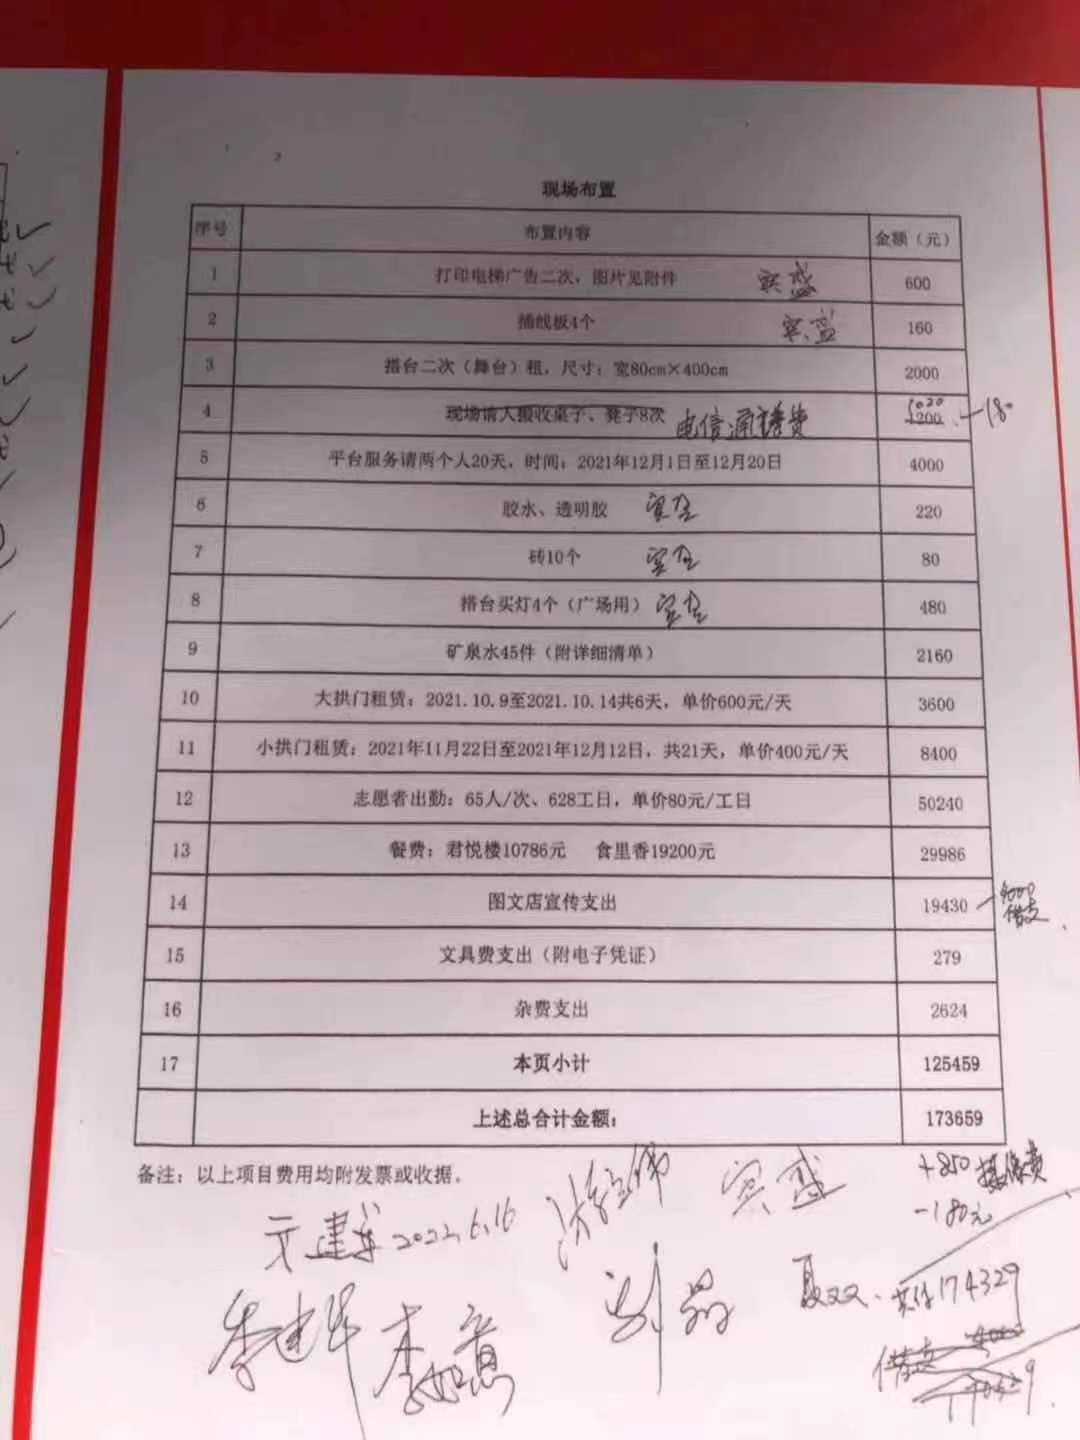 现场布置
序号 布置内容 金额（元）
1 打印电梯广告二次，图片见附件 宾盛 600
2 插线板4个 宾盛 160
3 搭台二次（舞台）租，尺寸：宽80cm×400cm 2000
4 现场请人搬收桌子、凳子8次 电信通 费 1020 1200 -180
5 平台服务请两个人20天，时间：2021年12月1日至12月20日 4000
6 胶水、透明胶 220
7 砖10个 80
8 搭台买灯4个（广场用） 480
9 矿泉水45件（附详细清单） 2160
10 大拱门租赁：2021.10.9至2021.10.14共6天，单价600元/天 3600
11 小拱门租赁：2021年11月22日至2021年12月12日，共21天，单价400元/天 8400
12 志愿者出勤：65人/次、628工日，单价80元/工日 50240
13 餐费：君悦楼10786元 食里香19200元 29986
14 图文店宣传支出 19430 4000
借支
15 文具费支出（附电子凭证） 279
16 杂费支出 2624
17 本页小计 125459
上述总合计金额： 173659
备注：以上项目费用均附发票或收据。
+850 摄像费
-180元
宾盛
建华 2022.6.16
夏双双
174329
李建华 李如意
借支 4000
170329